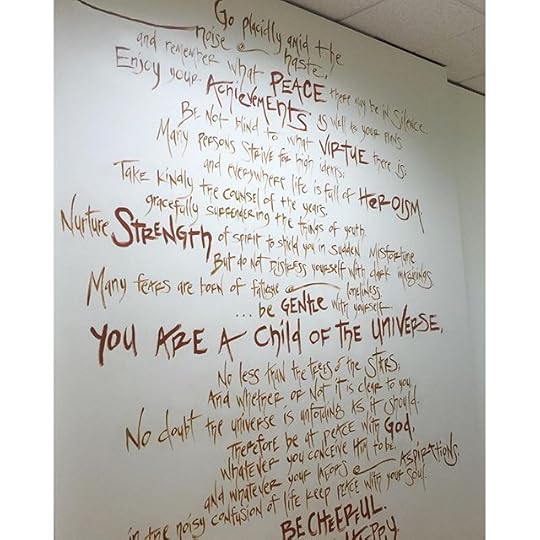 Go placidly amid the
noise & haste,
and remember what PEACE there may be in silence.
Enjoy your Achievements as well as your plans
Be not blind to what VIRTUE there is;
Many persons strive for high ideals;
and everywhere life is full of HEROISM.
Take kindly the counsel of the years,
gracefully surrendering the things of youth.
Nurture STRENGTH of spirit to shield you in sudden misfortune
But do not distress yourself with dark imaginings
Many fears are born of fatigue & loneliness.
...be GENTLE with yourself.
YOU ARE A Child OF THE UNIVERSE,
No less than the trees & the STARS;
And whether or not it is clear to you,
No doubt the universe is unfolding as it should.
Therefore be at peace with God,
whatever you conceive Him to be.
and whatever your labors & ASPIRATIONS,
in the noisy confusion of life keep peace with your soul.
BE CHEERFUL.
HAPPY